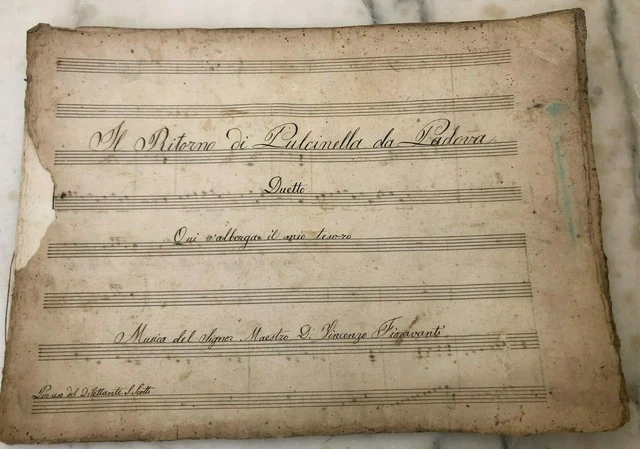 Il Ritorno di Pulcinella da Padova
Duetto
Qui s'alberga il mio tesoro
Musica del Signor Maestro D. Vincenzo Fioravanti
Per uso del Dilettante S. Scotti